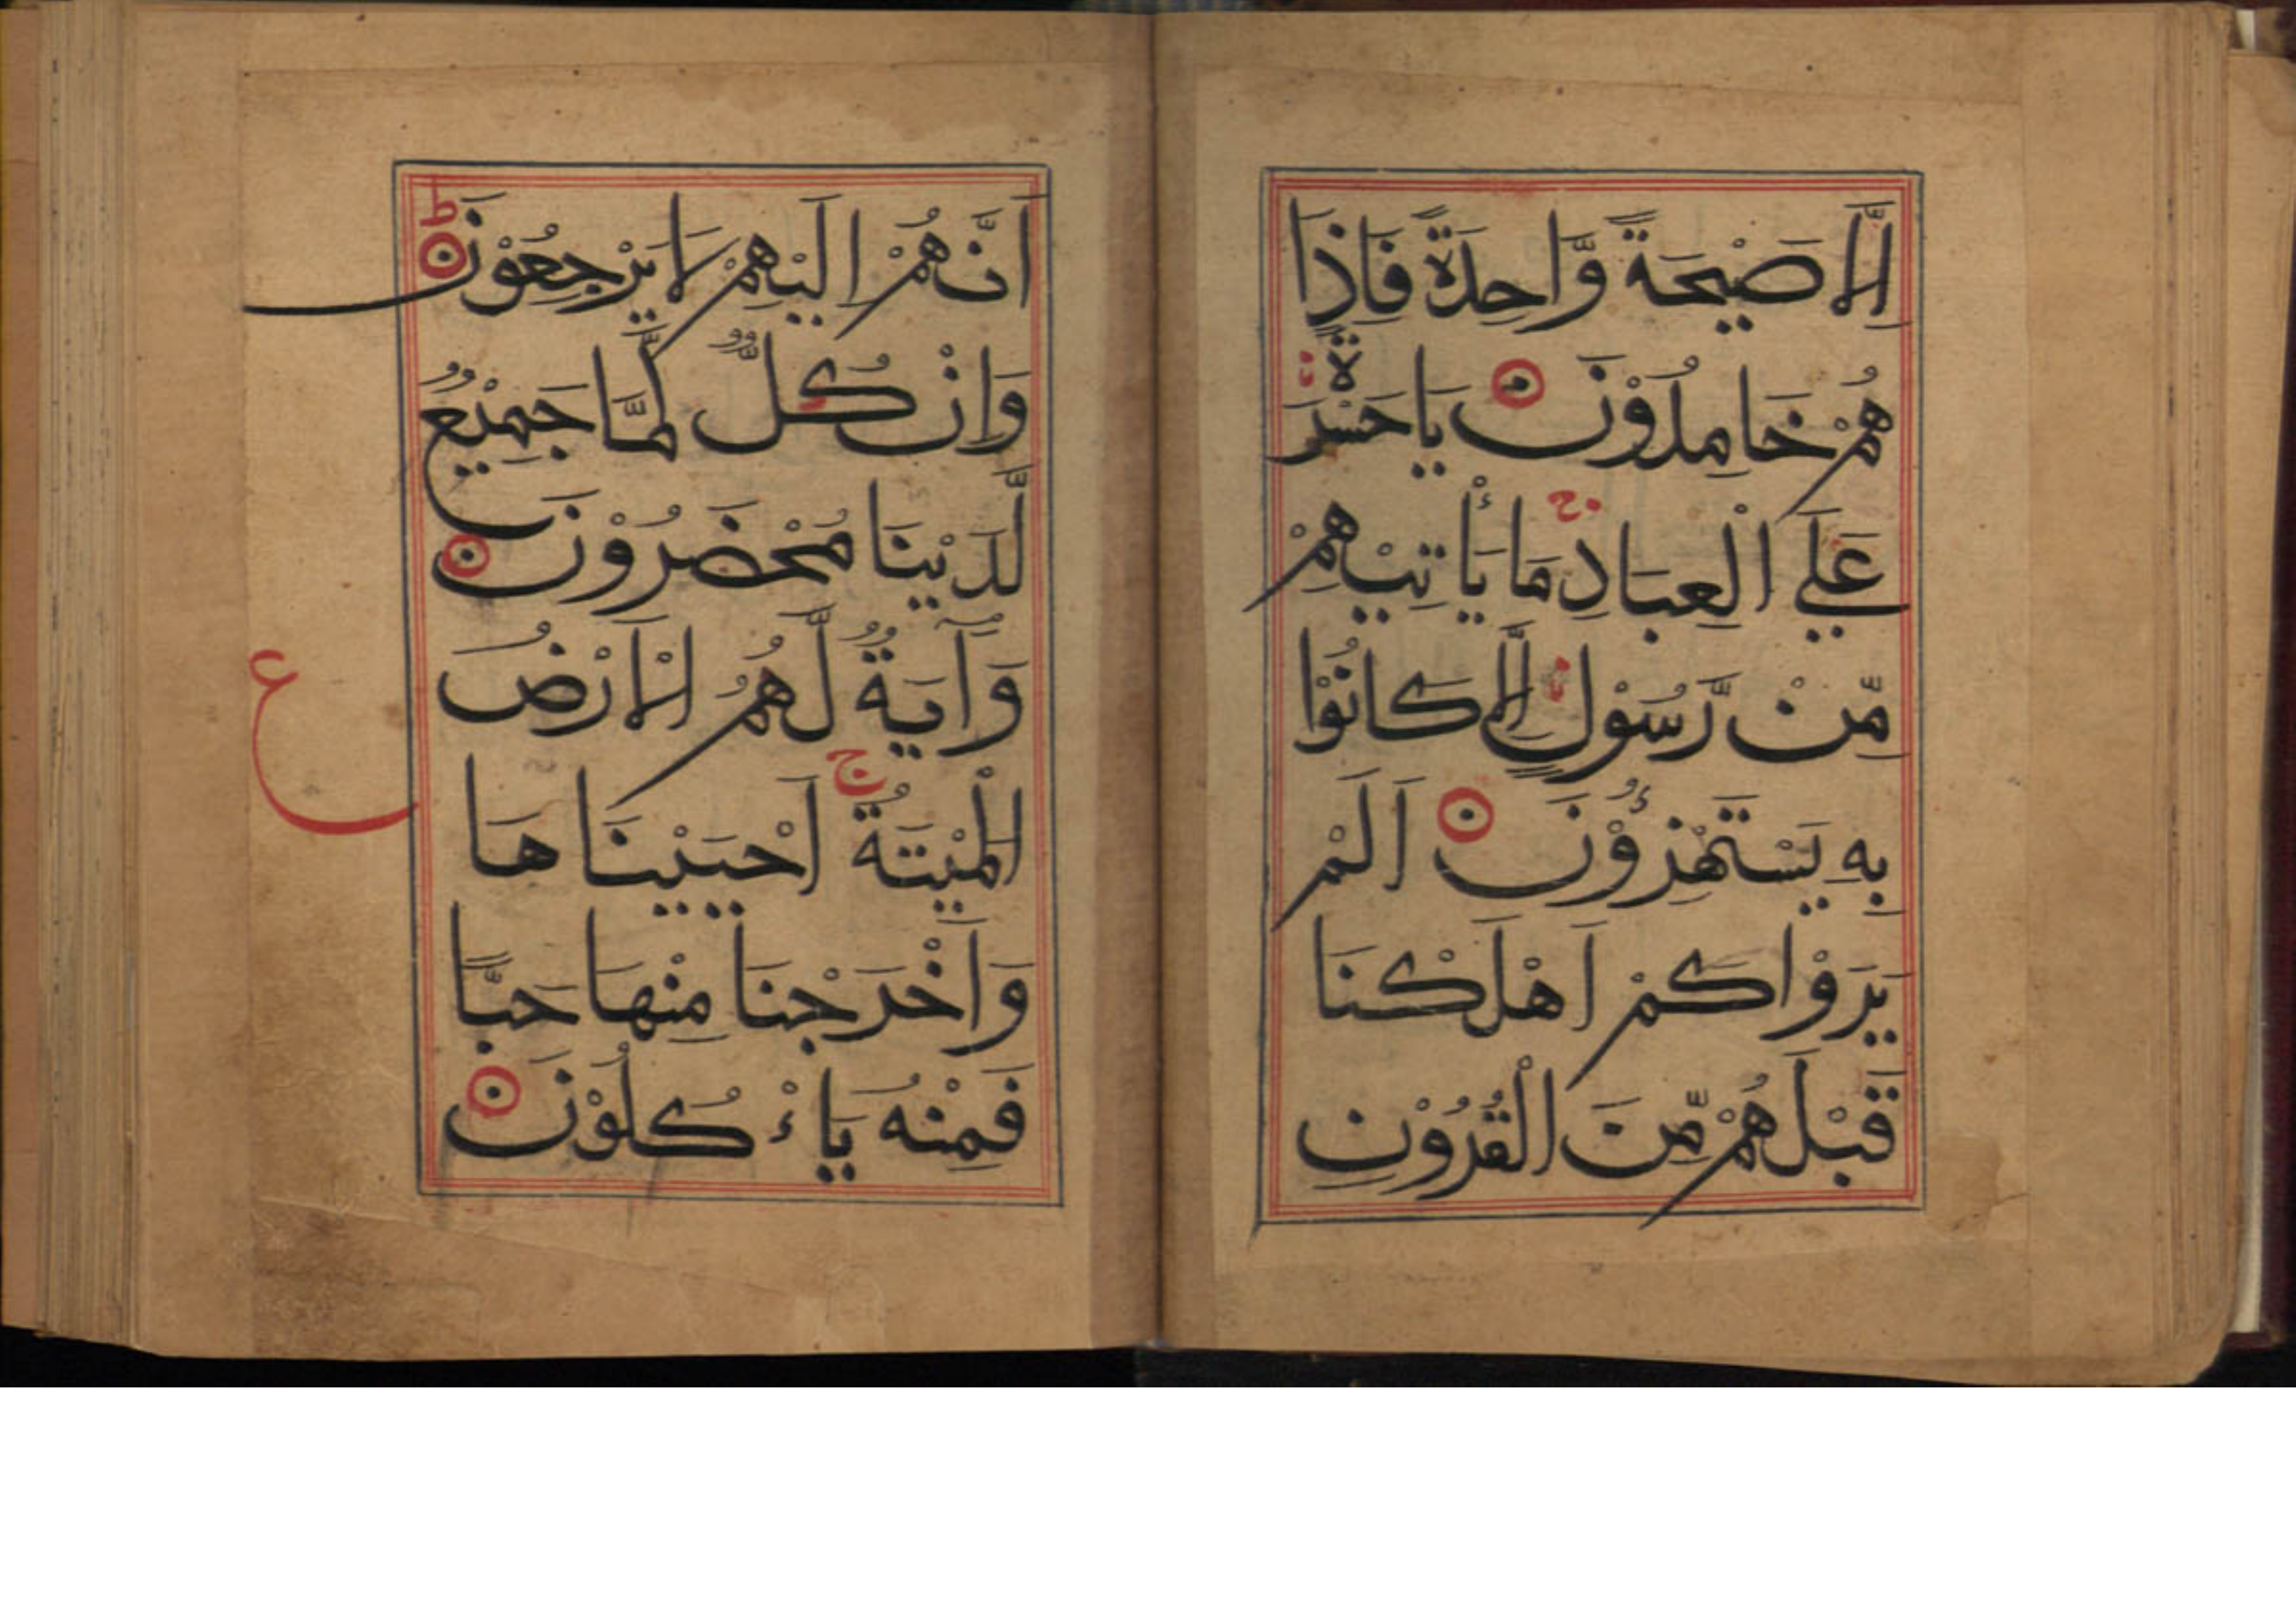 اِلَّا صَيْحَةً وَّاحِدَةً فَاِذَا
هُمْ خَامِدُوْنَ يَا حَسْرَةً
عَلَي الْعِبَادِ مَا يَأْتِيْهِمْ
مِّنْ رَّسُوْلٍ اِلَّا كَانُوْا
بِهٖ يَسْتَهْزِؤُنَ اَلَمْ
يَرَوْا كَمْ اَهْلَكْنَا
قَبْلَهُمْ مِّنَ الْقُرُوْنِ
اَنَّهُمْ اِلَيْهِمْ لَا يَرْجِعُوْنَ ط
وَاِنْ كُلٌّ لَّمَّا جَمِيْعٌ
لَّدَيْنَا مُحْضَرُوْنَ
ع
وَآيَةٌ لَّهُمُ الْاَرْضُ
الْمَيْتَةُ ج اَحْيَيْنَا هَا
وَاَخْرَجْنَا مِنْهَا حَبًّا
فَمِنْهُ يَاءْكُلُوْنَ